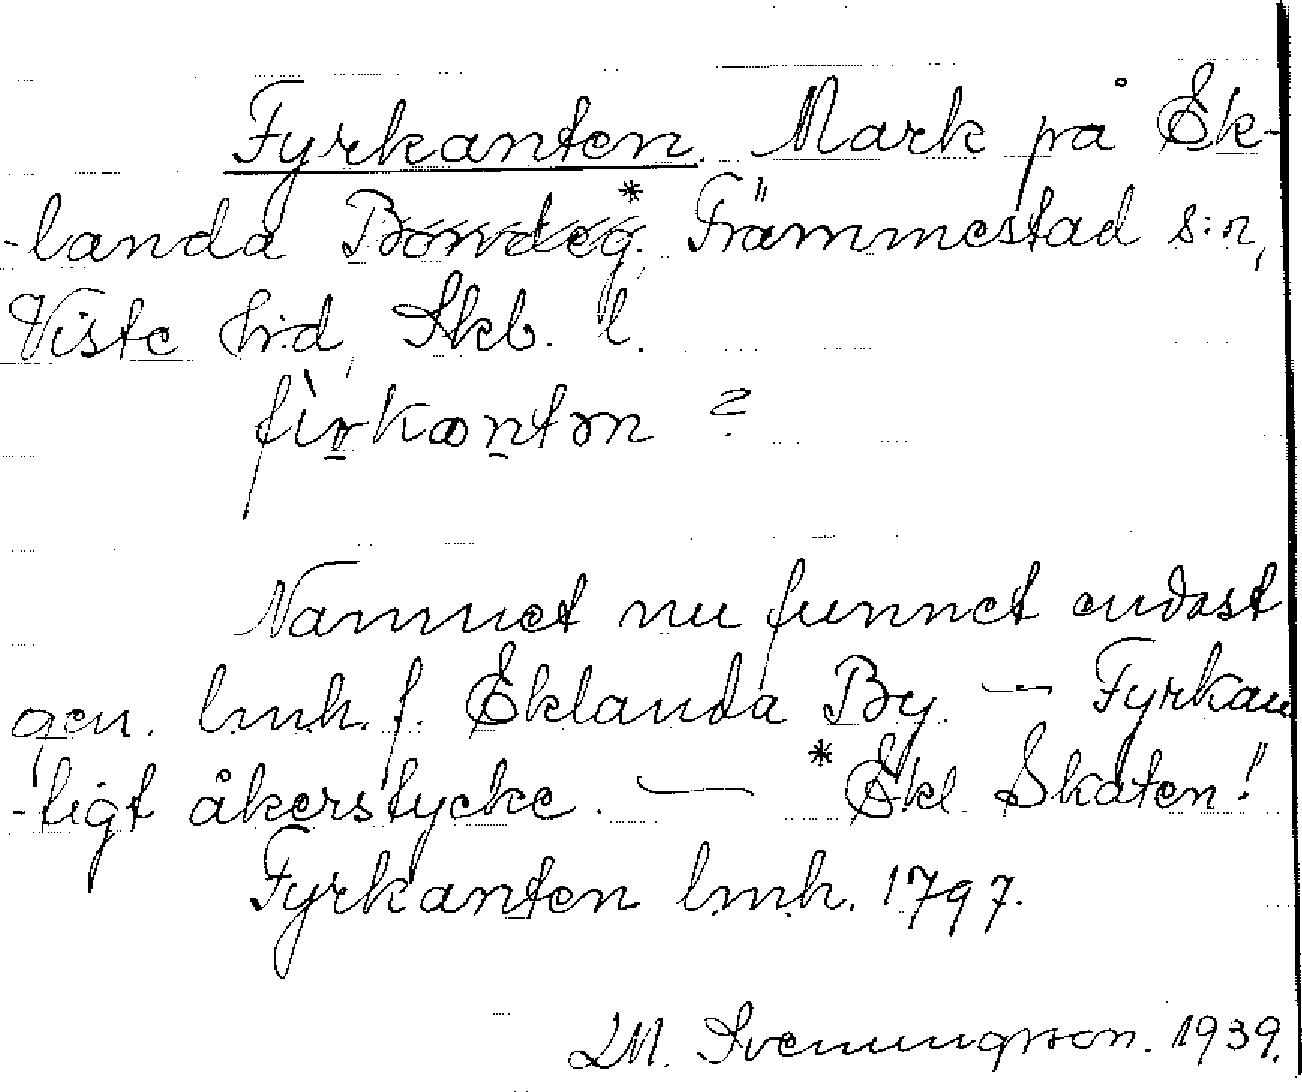 Fyrkanten. Mark på Ek-
-landa Bondeg.* Främmestad s:n,
Viste h:d, Skb. l.
fìrkantən ?
Namnet nu funnet endast
gen. lmh. f. Eklanda By. — Fyrkan
-tigt åkerstycke. — * Ekl. Skaten!
Fyrkanten lmh. 1797.
LM. Svenungsson. 1939.